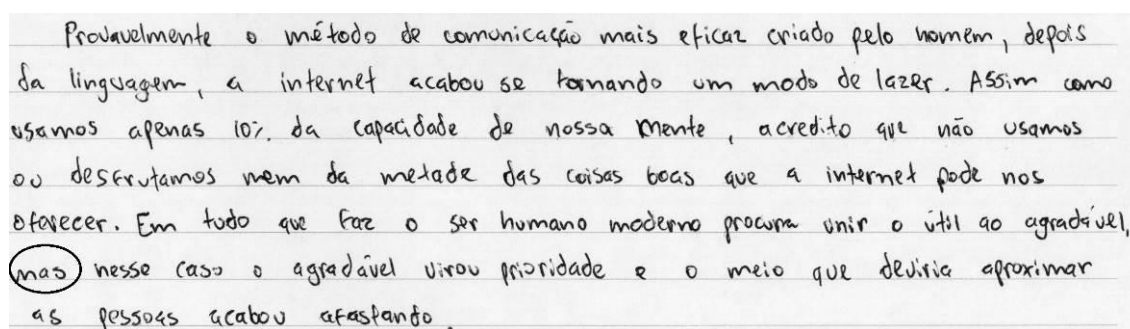 Provavelmente o método de comunicação mais eficaz criado pelo homem, depois
da linguagem, a internet acabou se tornando um modo de lazer. Assim como
usamos apenas 10% da capacidade de nossa mente, acredito que não usamos
ou desfrutamos nem da metade das coisas boas que a internet pode nos
oferecer. Em tudo que faz o ser humano moderno procura unir o útil ao agradável,
mas nesse caso o agradável virou prioridade e o meio que deviria aproximar
as pessoas acabou afastando.